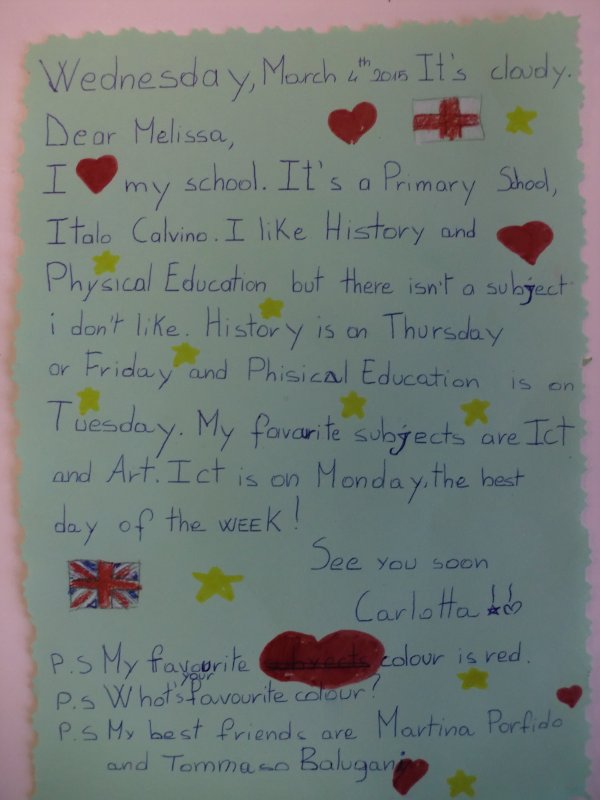 Wednesday, March 4th 2015 It's cloudy.
Dear Melissa,
I my school. It's a Primary School,
Italo Calvino. I like History and
Physical Education but there isn't a subject
i don't like. History is on Thursday
or Friday and Phisical Education is on
Tuesday. My favarite subjects are Ict
and Art. Ict is on Monday, the best
day of the WEEK!
See you soon
Carlotta
P.S My favourite subjects colour is red.
P.S What's your favourite colour?
P.S My best friends are Martina Porfido
and Tommaso Balugani